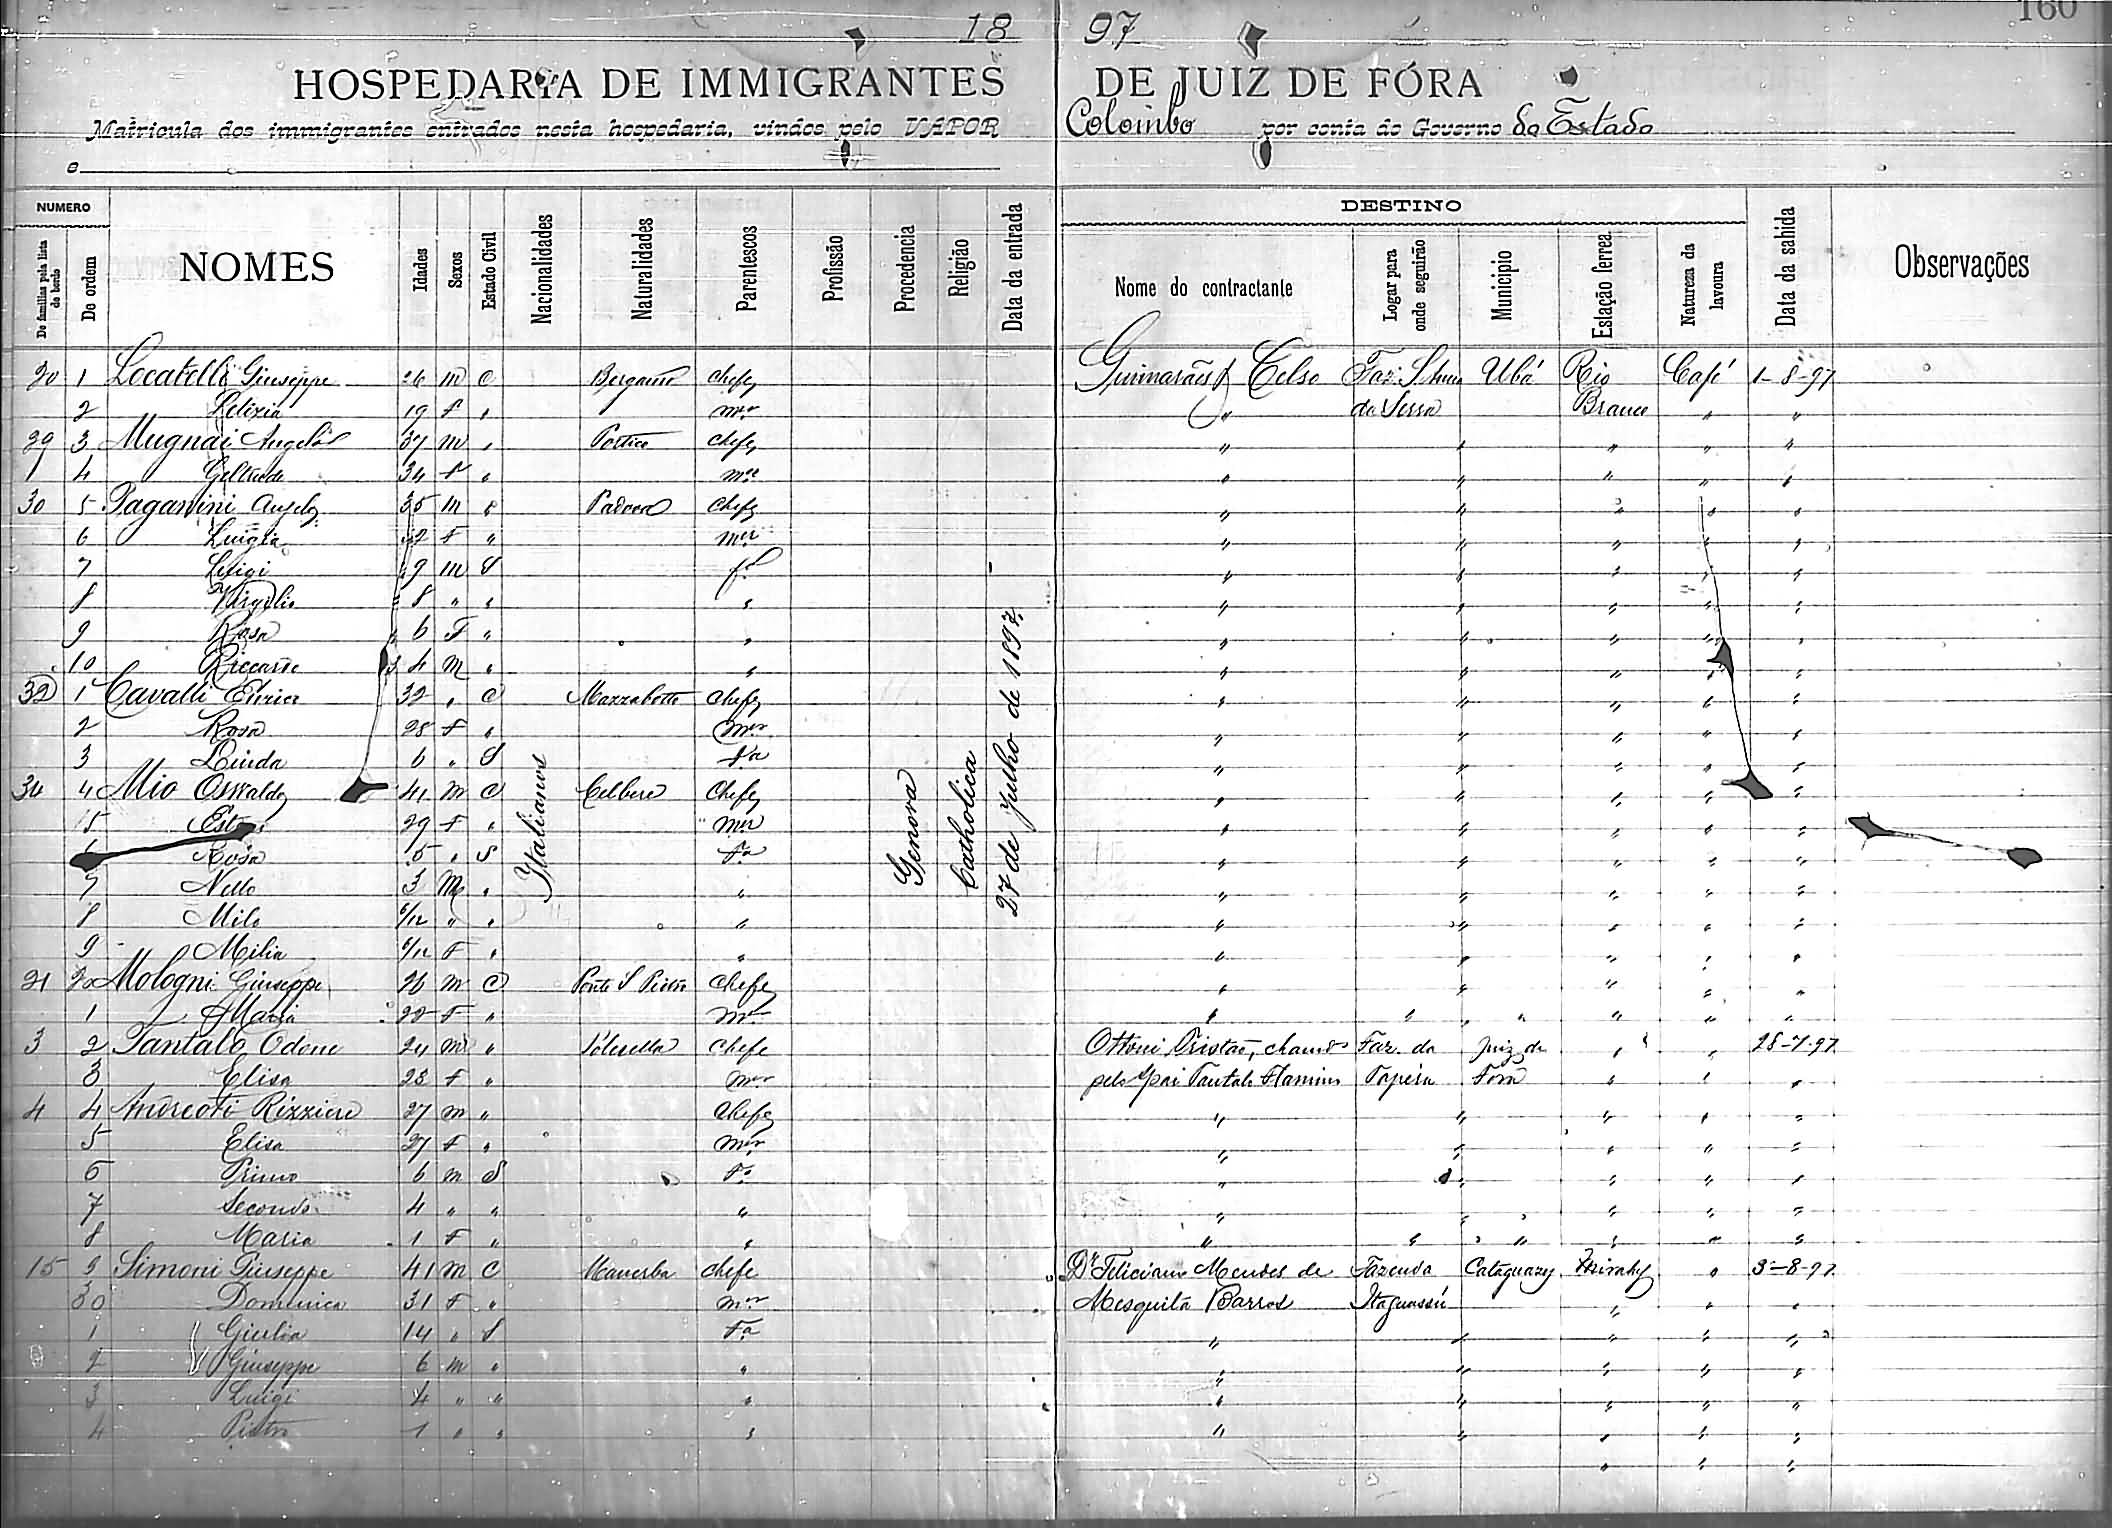 160
18 97
HOSPEDARIA DE IMMIGRANTES DE JUIZ DE FÓRA
Matricula dos immigrantes entrados nesta hospedaria, vindos pelo VAPOR Colombo por conta do Governo do Estado
e
NUMERO
DESTINO
De familias pela lista de bordo
De ordem
NOMES
Idades
Sexos
Estado Civil
Nacionalidades
Naturalidades
Parentescos
Profissão
Procedencia
Religião
Data da entrada
Nome do contractante
Logar para onde seguirão
Municipio
Estação ferrea
Natureza da lavoura
Data da sahida
Observações
Italianos
Genova
Catholica
27 de Julho de 1897
20 1 Locatelli Giuseppe 26 m C Bergamo Chefe Guimarães & Celso Faz. Ubá Rio Café 1-8-97
2 19 f " mer " da Serra Branco " "
29 3 Mugnai Angelo 37 m " Chefe " " " " "
4 34 f " mer " " " " "
30 5 Paganini Angelo 35 m " Padova Chefe " " " " "
6 Luigia 32 f " mer " " " " "
7 Luigi 9 m S fo " " " " "
8 Virgilio 8 " " " " " " " "
9 Rosa 6 F " " " " " " "
10 4 m " " " " " " "
32 1 Cavalli 32 " C Chefe " " " " "
2 Rosa 28 f " mer " " " " "
3 Linda 6 " S fa " " " " "
34 4 Mio Osvaldo 41 m C Chefe " " " " "
15 29 f " mer " " " " "
Rosa 5 " S fa " " " " "
7 Nello 3 m " " " " " " "
8 Milo 6/12 " " " " " " " "
9 Milia 6/12 F " " " " " " "
21 20 Mologni Giuseppe 26 m C Ponte S Pietro Chefe " " " " "
1 Maria 22 F " mer " " " " " "
3 2 Tantalo Odone 24 m " Polesella Chefe Ottoni Tristão, chamado Faz. da Juiz de " " 28-7-97
3 Elisa 23 f " mer pelo pai Tantalo Flaminio Tapéra Fora " " "
4 4 Andreoti Rizziere 27 m " Chefe " " " " "
5 Elisa 27 f " mer " " " " "
6 Primo 6 m S fo " " " " "
7 Secondo 4 " " " " " " " "
8 Maria 1 F " " " " " " " "
15 9 Simoni Giuseppe 41 m C Manerba Chefe Dr Feliciano Mendes de Fazenda Cataguazes " 3-8-97
30 Domenica 31 f " mer Mesquita Barros Itaguassú " " "
1 Giulia 14 " S fa " " " " "
2 Giuseppe 6 m " " " " " " "
3 Luigi 4 " " " " " " " "
4 Pietro 1 " " " " " " " "
" " "